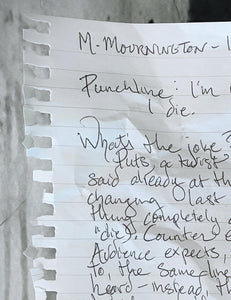 M. MOURNINGTON -
Punchline: I'm
I die.
What's the joke?
Puts a twist
said already at th
changing last
thing completely
"die). Counter e
Audience expects,
to, the same line
heard - instead, th